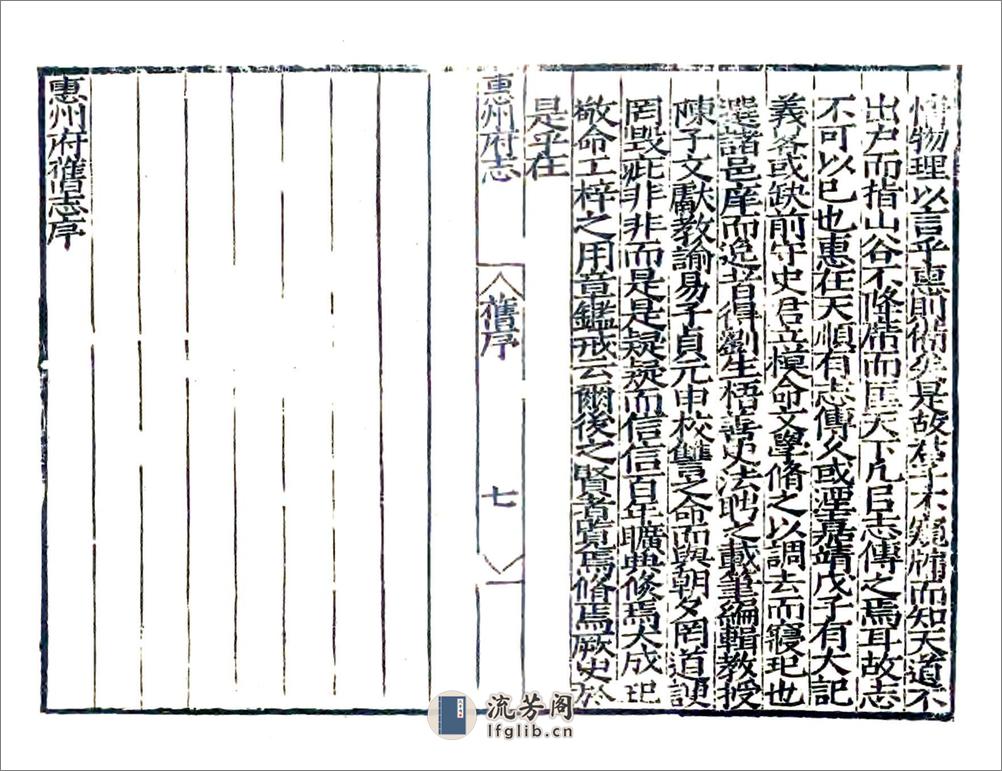 情物理以言乎惠則備矣是故君子不窺牖而知天道不
出户而指山谷不降席而匡天下凡㠯志傳之焉耳故志
不可以已也惠在天順有志傳久或湮嘉靖戊子有大記
義畧或缺前守史君立模命文學脩之以調去而寢玘也
選諸邑庠而逸者得劉生梧善史法聘之載筆編輯教授
陳子文獻教諭易子貞元申校讐之命而與朝夕罔道諛
罔毁疵非非而是是疑疑而信信百年曠典倏焉大成玘
敬命工梓之用章鑑戒云爾後之賢者覽焉脩焉厥史於
是乎在
惠州府志
舊序
七
惠州府舊志序
流芳阁
lfglib.cn